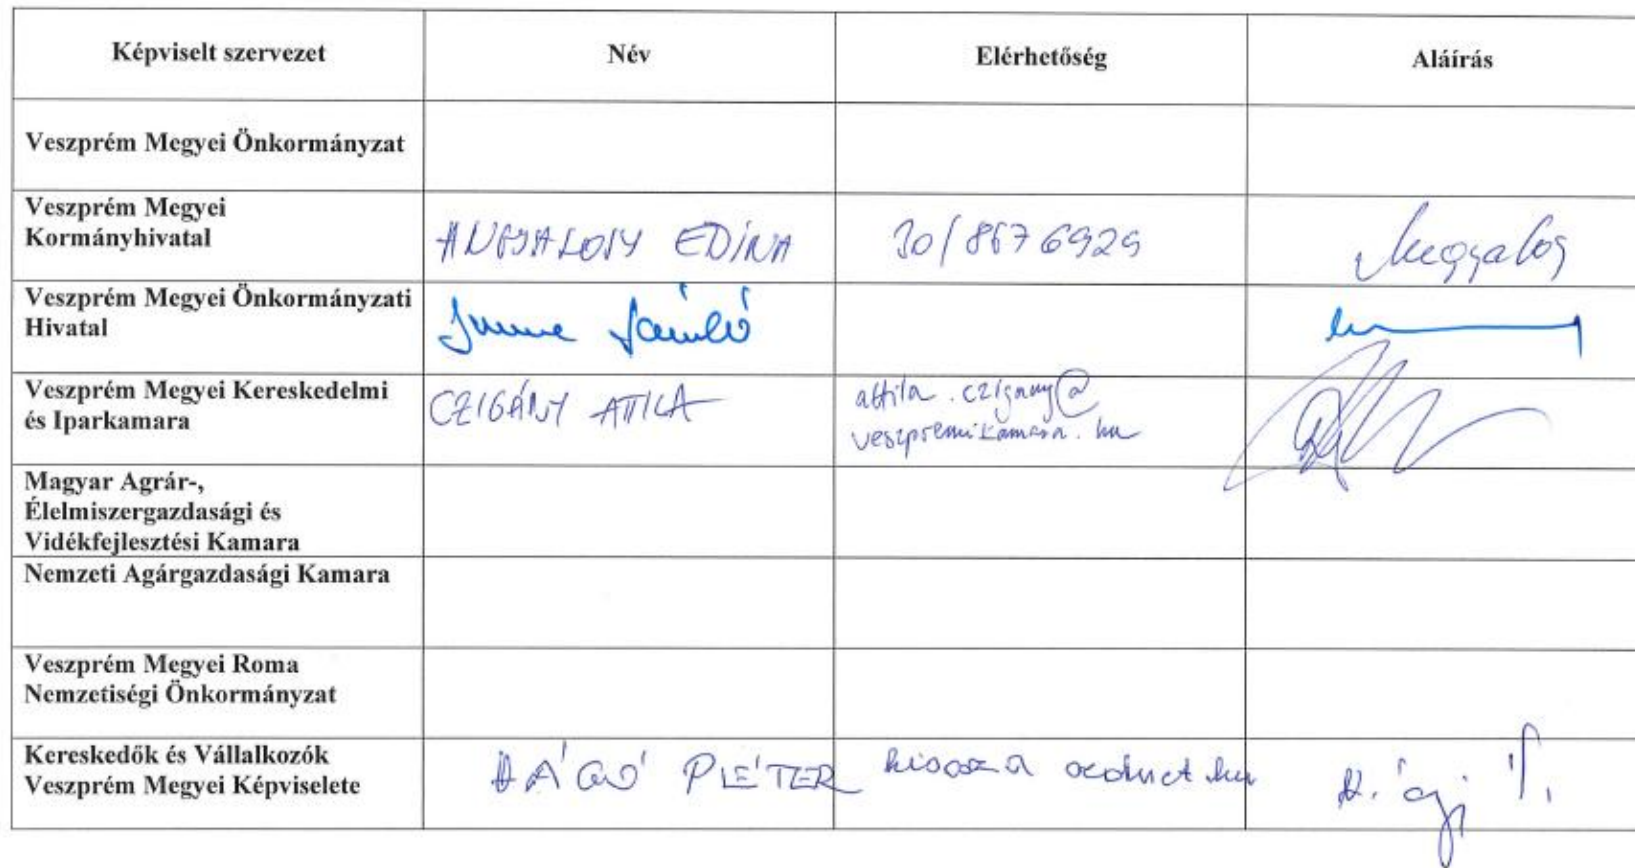 Képviselt szervezet Név Elérhetőség Aláírás
Veszprém Megyei Önkormányzat
Veszprém Megyei
Kormányhivatal
ANGYALOSY EDINA 30/867 6929
Veszprém Megyei Önkormányzati
Hivatal
Veszprém Megyei Kereskedelmi
és Iparkamara
CZIGÁNY ATTILA
attila.czigany@
veszpremikamara.hu
Magyar Agrár-,
Élelmiszergazdasági és
Vidékfejlesztési Kamara
Nemzeti Agárgazdasági Kamara
Veszprém Megyei Roma
Nemzetiségi Önkormányzat
Kereskedők és Vállalkozók
Veszprém Megyei Képviselete
PÉTER